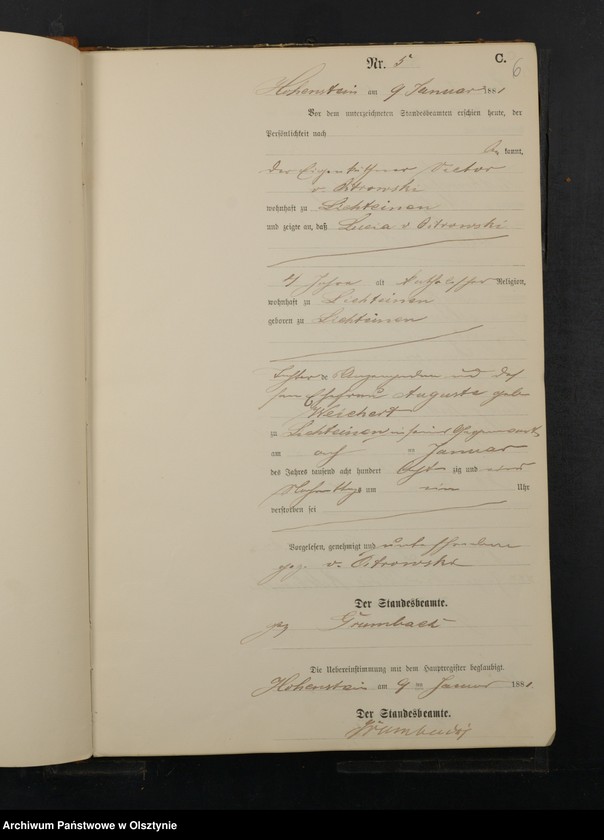 Nr. 5 C.
6
Hohenstein am 9 Januar 1881
Vor dem unterzeichneten Standesbeamten erschien heute, der
Persönlichkeit nach
kannt,
der Eigenkäthner Victor
v. Ostrowski
wohnhaft zu Lichteinen
und zeigte an, daß Lucia v Ostrowski
4 Jahre alt katholischer Religion,
wohnhaft zu Lichteinen
geboren zu Lichteinen
Tochter des Anzeigenden und dessen
Ehefrau Auguste geb.
Weichert
zu Lichteinen in seiner Gegenwart
am ten Januar
des Jahres tausend acht hundert acht zig und eins
Nachmittags um ein Uhr
verstorben sei
Vorgelesen, genehmigt und unterschrieben
gez. v. Ostrowski
Der Standesbeamte.
gez Grumbach
Die Uebereinstimmung mit dem Hauptregister beglaubigt.
Hohenstein am 9 ten Januar 1881.
Der Standesbeamte.
Grumbach
Archiwum Państwowe w Olsztynie